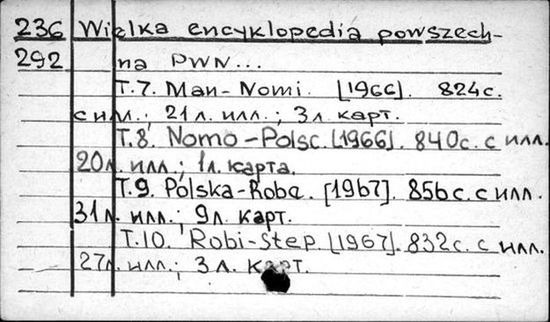 236 Wielka encyklopedia powszech-
292 na PWN...
T.7. Man-Nomi. [1966]. 824с.
с илл.; 21 л. илл.; 3л карт.
T.8. Nomo-Polsc. [1966]. 840с. с илл.
20л. илл.; 1л. карта.
T.9. Polska-Robe. [1967]. 856с. с илл.
31л. илл.; 9л. карт.
T.10. Robi-Step. [1967]. 832с. с илл.
27л. илл.; 3 л. карт.